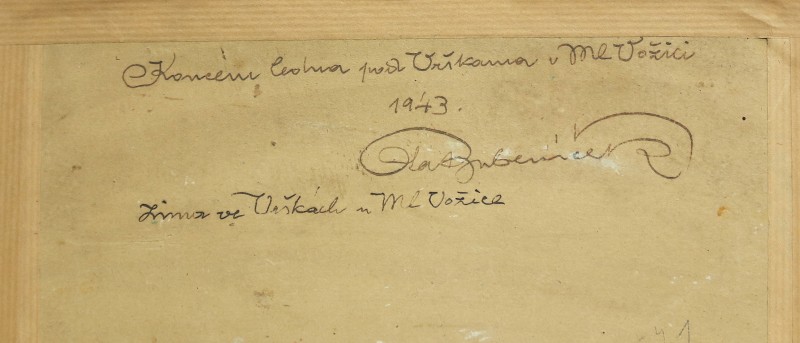 Koncem ledna pod Vrškama u Ml Vožici
1943.
Ota Bubeníček
Zima ve Vrškách u Ml Vožice